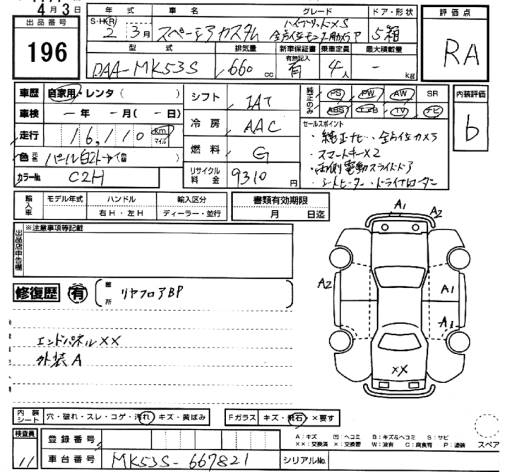 4月3日
出品番号
196
年式
車名
グレード
ドア・形状
評価点
S・H(R)
2年3月
スペーシアカスタム
ハイブリッドXS
全方位モニター用カメラP
5箱
RA
型式
排気量
新車保証書
有無記入
乗車定員
最大積載量
DAA-MK53S
660cc
有
4人
-kg
車歴
自家用・レンタ( )
シフト
IAT
純正のみ
PS PW AW SR
ABS エアB TV ナビ
内装評価
b
車検
-年 -月(-日)
冷房
AAC
セールスポイント
・純正ナビ・全方位カメラ
・スマートキーX2
・両側電動スライドドア
・シートヒーター・ドライブレコーダー
走行
16,110
km
マイル
燃料
G
色
元色
パール白2トーン
(替 )
カラーNo.
C2H
リサイクル料金
9310円
輸入車
モデル年式
年
ハンドル
右H・左H
輸入区分
ディーラー・並行
書類有効期限
月 日迄
出品店申告欄
※注意事項等記載
修復歴
有
箇所
リヤフロアBP
エンドパネルXX
外装A
A1
A2
A2
A1
A1
XX
内装シート
穴・破れ・スレ・コゲ・汚れ・キズ・黄ばみ
Fガラス
キズ・飛石・×要す
検査員
11
登録番号
車台番号
MK53S-667821
シリアルNo.
A:キズ
凹:ヘコミ
B:キズ&ヘコミ
S:サビ
XX:交換済
X:交換要
W:波有
C:腐食有
P:塗装
スペア